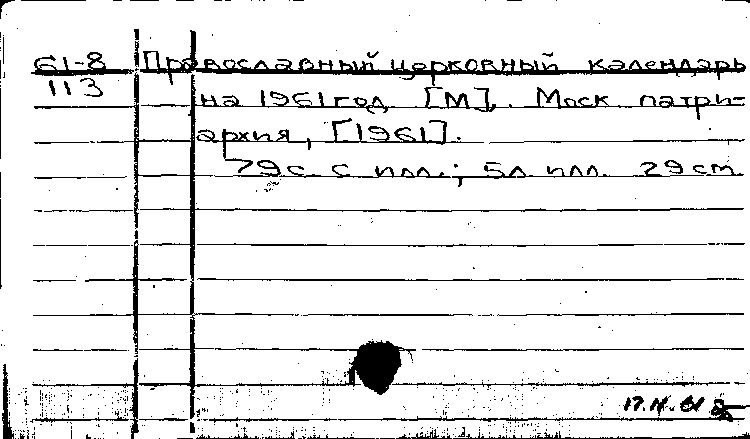 61-8 Православный церковный календарь
113
на 1961 год. [М], Моск. патри-
архия, [1961].
79 с. с илл.; 5 л. илл. 29 см.
17.II.61